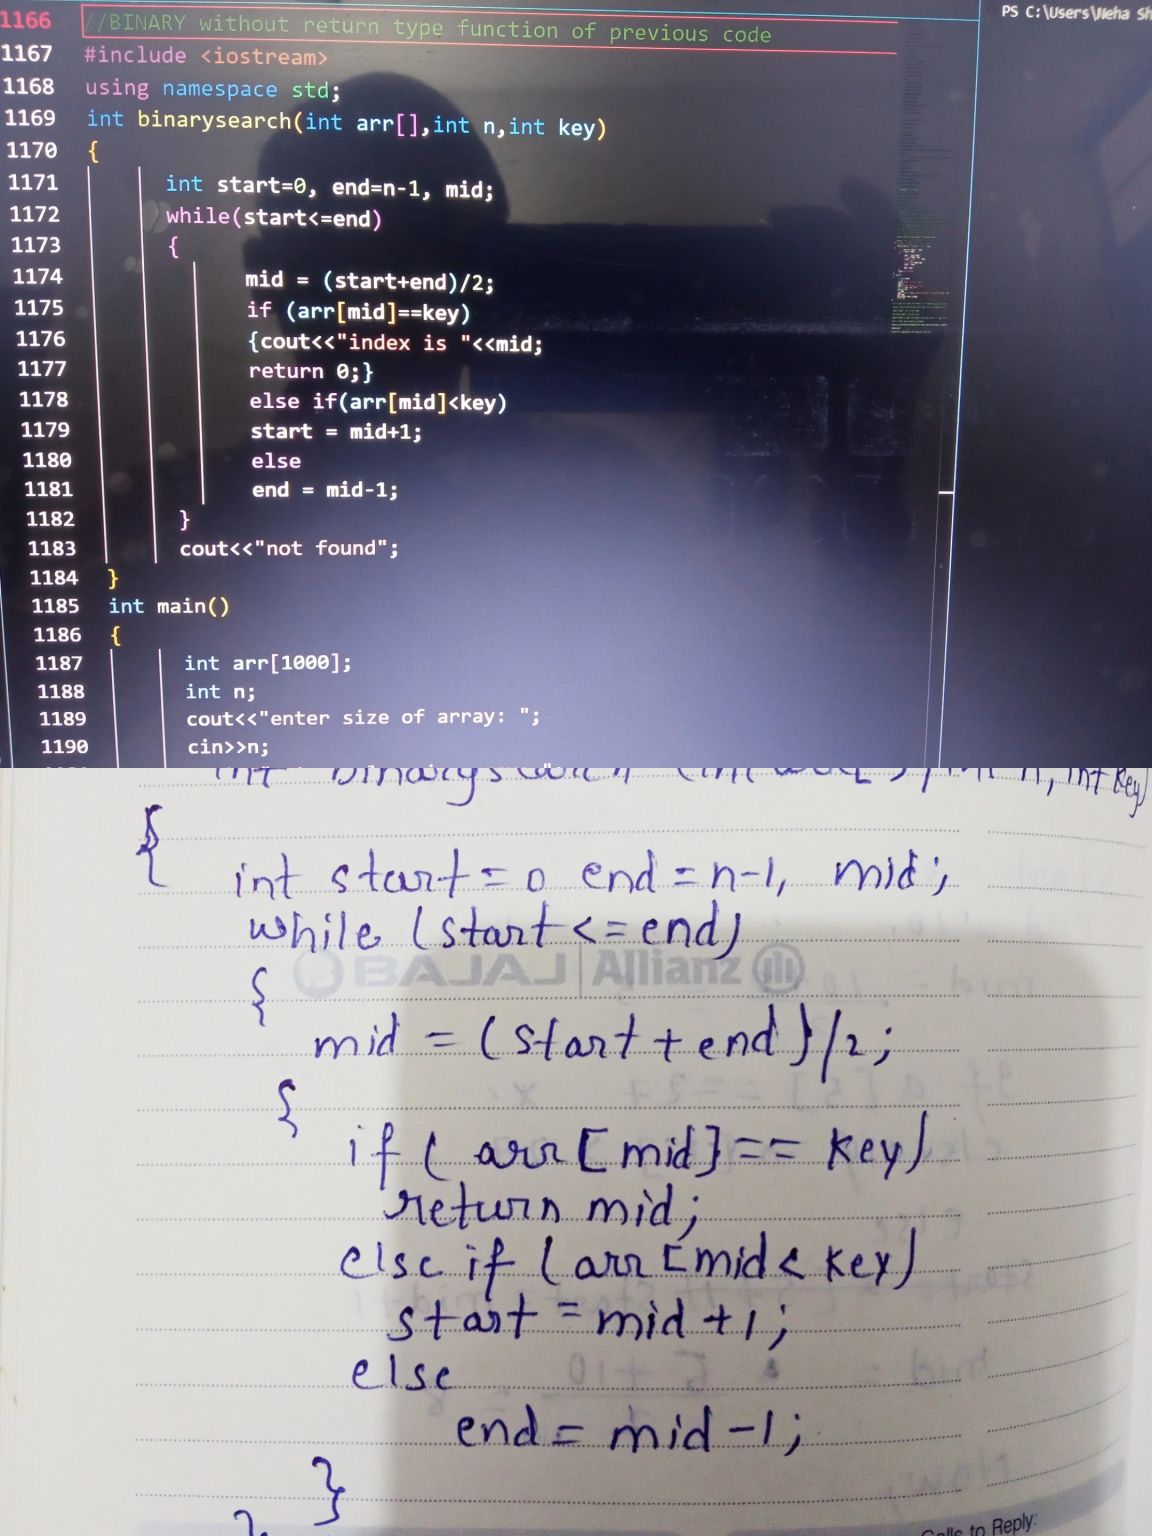 1166 //BINARY without return type function of previous code
PS C:\Users\Neha Sh
1167 #include <iostream>
1168 using namespace std;
1169 int binarysearch(int arr[],int n,int key)
1170 {
1171 int start=0, end=n-1, mid;
1172 while(start<=end)
1173 {
1174 mid = (start+end)/2;
1175 if (arr[mid]==key)
1176 {cout<<"index is "<<mid;
1177 return 0;}
1178 else if(arr[mid]<key)
1179 start = mid+1;
1180 else
1181 end = mid-1;
1182 }
1183 cout<<"not found";
1184 }
1185 int main()
1186 {
1187 int arr[1000];
1188 int n;
1189 cout<<"enter size of array: ";
1190 cin>>n;
int n, int key)
{
int start = 0 end = n-1, mid;
while (start <= end)
BAJAJ | Allianz
{
mid = (start + end)/2;
{
if ( arr [ mid] == key)
return mid;
else if ( arr [mid < key)
start = mid +1;
else
end = mid -1;
}
}
to Reply: